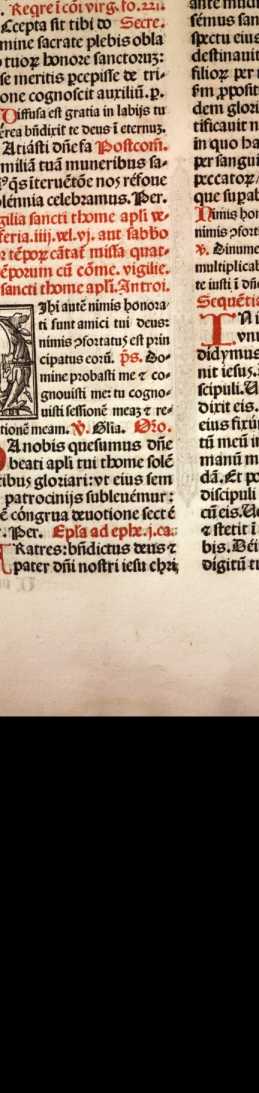 . Reqre ī cōi virg. fo. 221.
Ccepta sit tibi do Secre.
mine sacrate plebis obla
tuoꝝ honore sanctorum:
se meritis percepisse de tri-
one cognoscit auxiliū. p.
Diffusa est gratia in labijs tu
erea bn̄dixit te deus ī eternuʒ.
Atiasti dn̄e fa Postcoīn.
miliā tuā muneribus sa-
qs īteruētōe nos refoue
olēnnia celebramus. Per.
gilia sancti thome apl̄i ve-
feria. iiij. vel. vj. aut sabbo
r tēporum cātat̄ missa quat-
ēporum cū cōme. vigilie.
sancti thome apl̄i. Introi.
Ihi autē nimis honora
ti sunt amici tui deus:
nimis ꝯfortatus est prin
cipatus eorū. ps. Do-
mine probasti me ⁊ co-
gnouisti me: tu cogno-
uisti sessionē meaʒ ⁊ re-
tionē meam. ℣. Glīa. Oro.
A nobis quesumus dn̄e
beati apl̄i tui thome solē
ibus gloriari: vt eius sem
patrocinijs subleuemur:
ē cōngrua deuotione sect ē
. Per. Epl̄a ad ephe. j. ca.
Ratres: bn̄dictus deus ⁊
pater dn̄i nostri iesu chri
ante mun
semus san
spectu eius
destinauit
filioꝝ per i
ꝓposit
dem glori
tificauit n
in quo ha
per sangui
peccatoꝝ
que supab
Nimis hon
nimis ꝯfort
℣. Dinume
multiplicab
te iusti ī dn̄
Sequētia
didymus
nit iesus.
scipuli.
dixit eis.
eius fixur
tū meū ī
manū m
dā. Et po
discipuli
cū eis.
⁊ stetit ī
bis. Dei
digitū tu